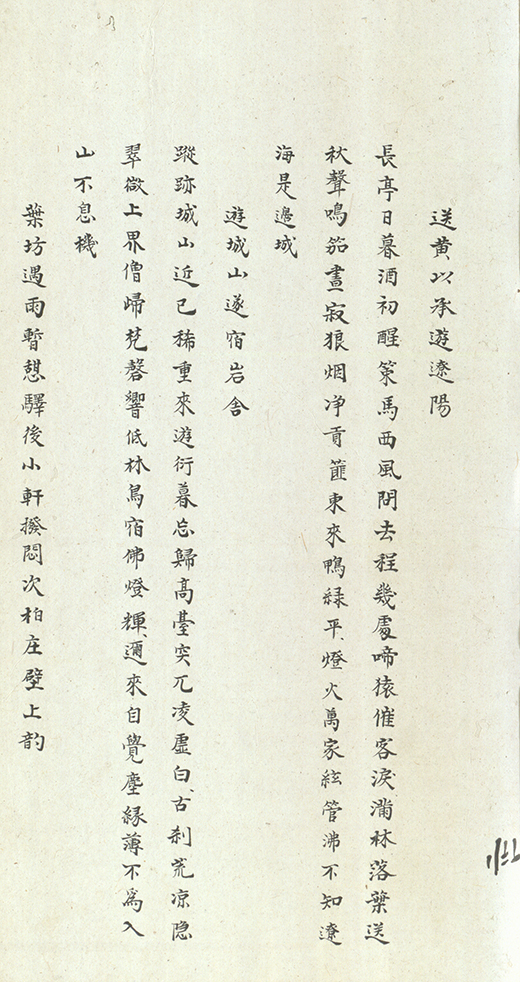 送黄以承遊遼陽
長亭日暮酒初醒策馬西風問去程幾處啼猿催客淚滿林落葉送
秋聲鳴笳晝寂狼烟净貢篚東來鴨綠平燈火萬家絃管沸不知遼
海是邊城
遊城山遂宿岩舍
蹤跡城山近已稀重來遊衍暮忘歸高臺突兀凌虛白古刹荒凉隐
翠微上界僧歸梵磬響低林鳥宿佛燈輝邇來自覺塵緣薄不爲入
山不息機
葉坊遇雨暫憇驛後小軒撥悶次柏庄壁上韵